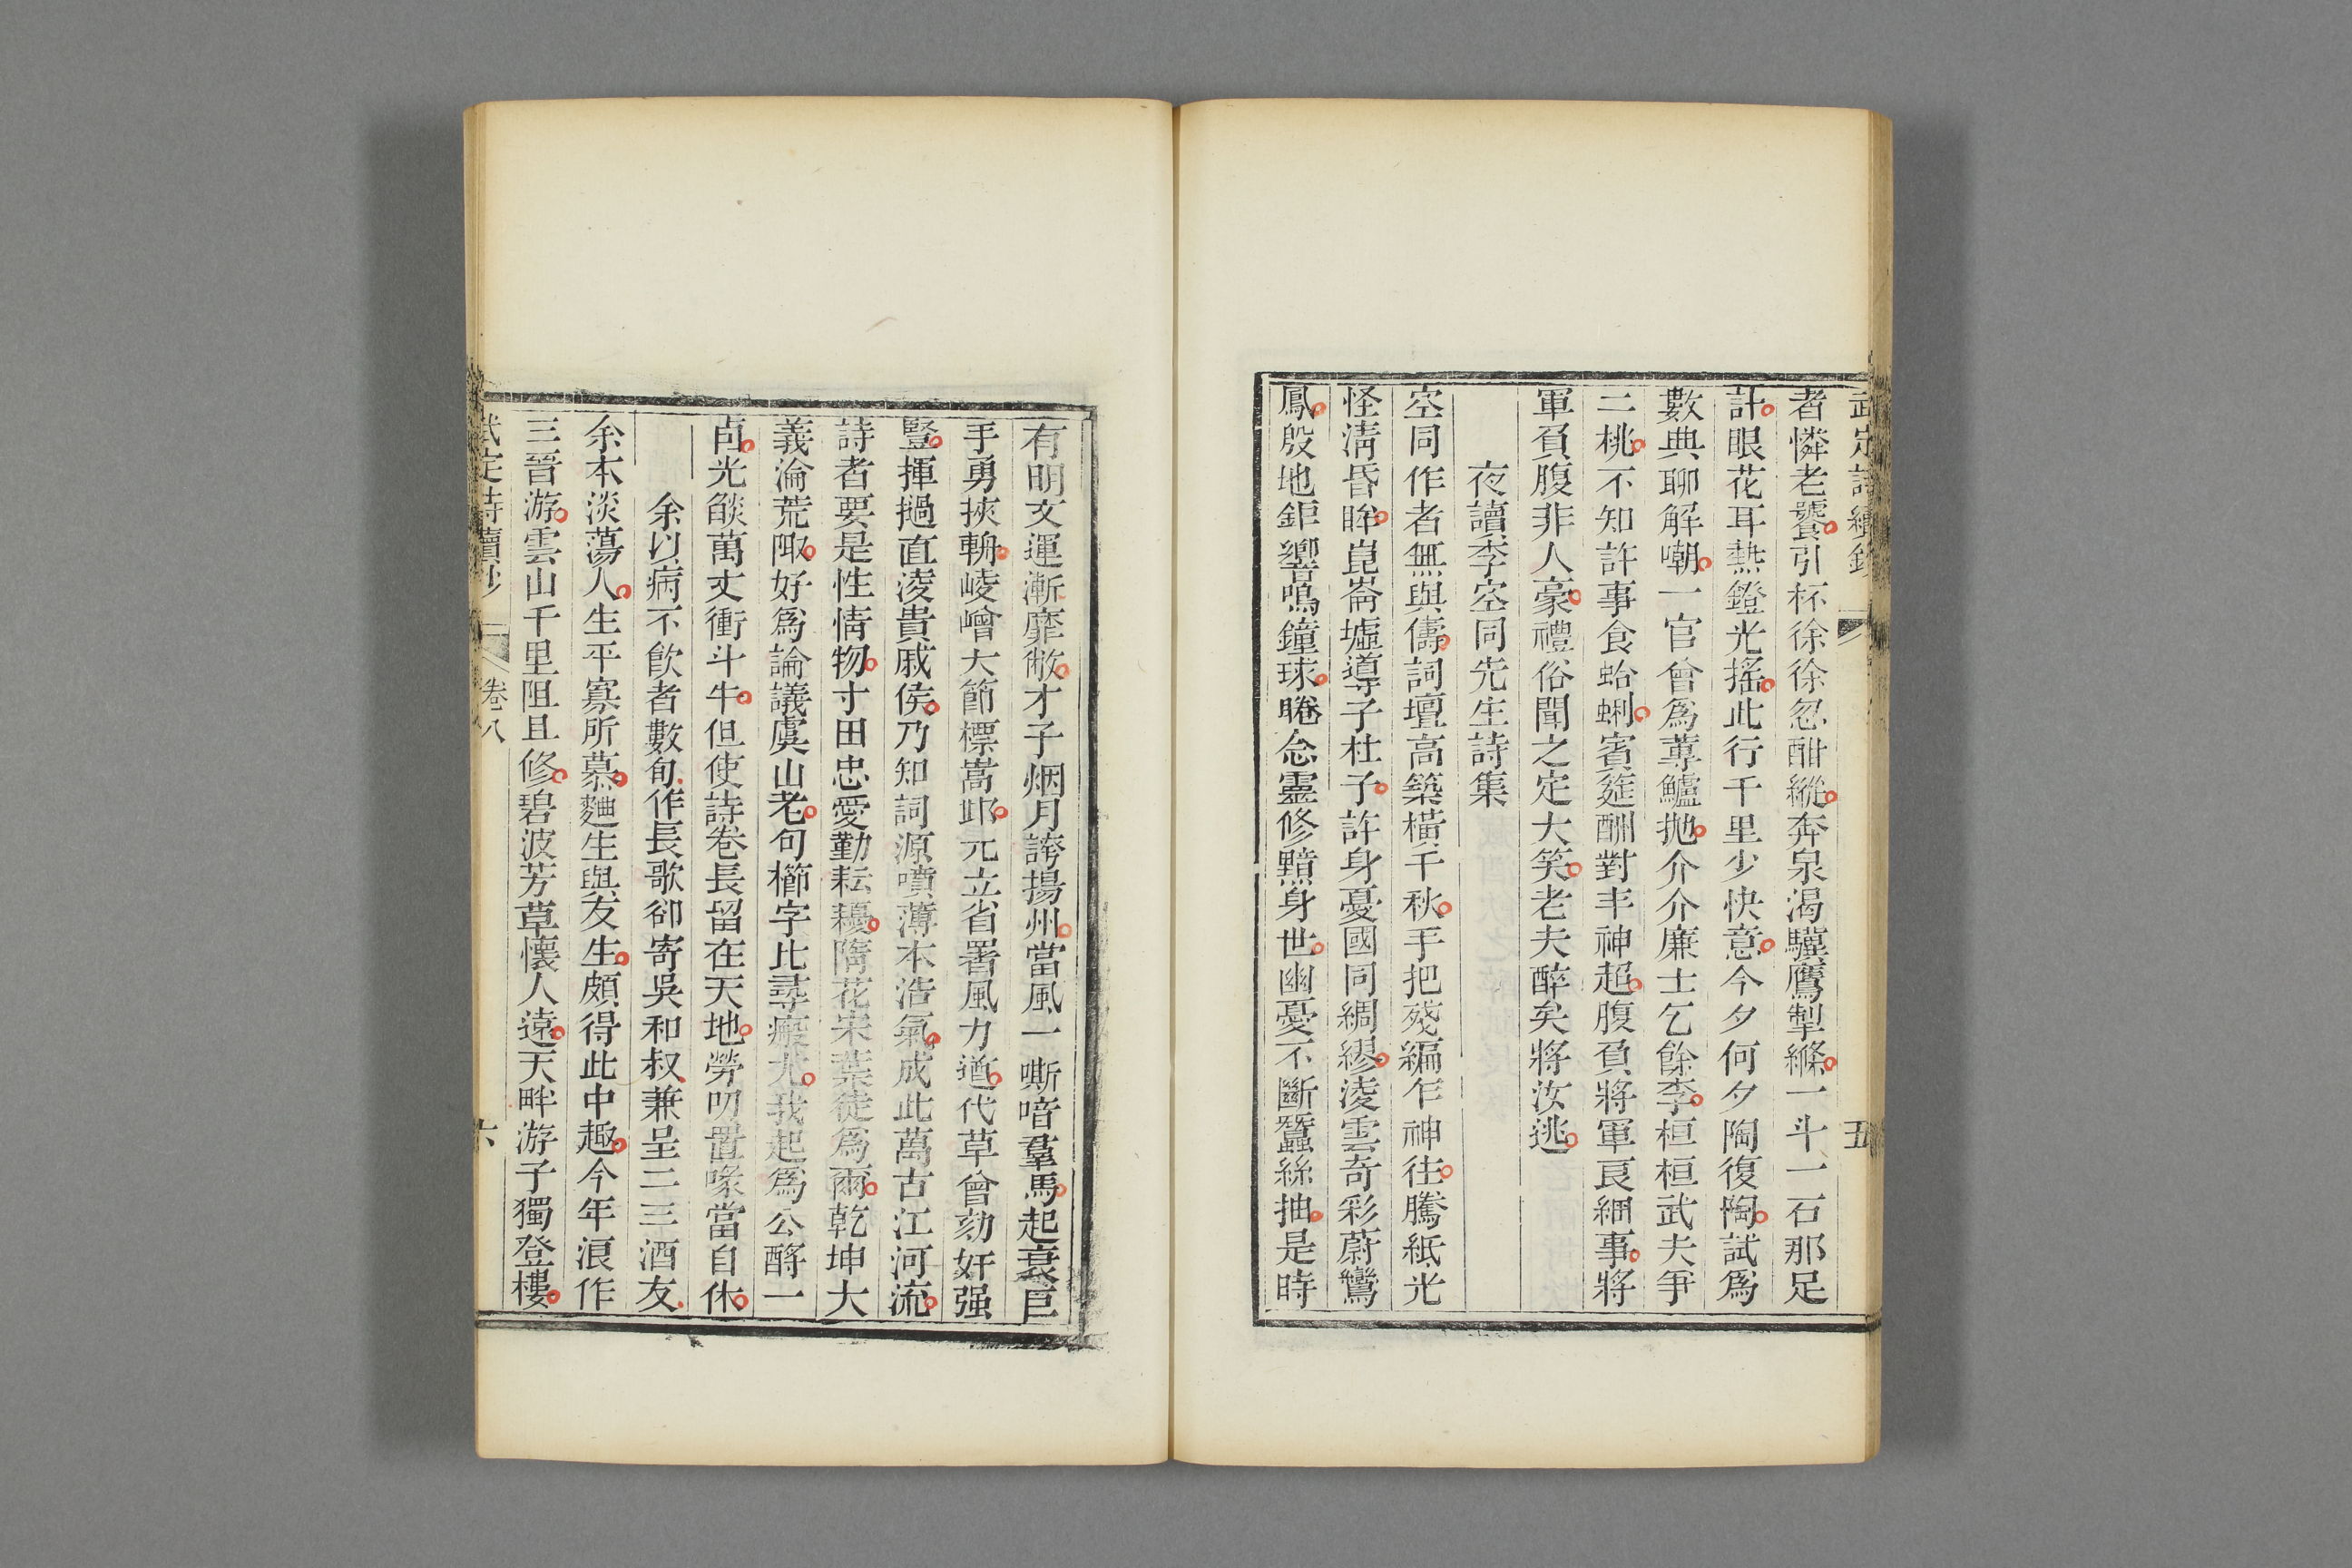 武定詩續鈔
五
者憐老饕引杯徐徐忽酣縱奔泉渴驥鷹掣絛一斗一石那足
計眼花耳熱鐙光搖此行千里少快意今夕何夕陶復陶試爲
數典聊解嘲一官曾爲蓴鱸拋介介廉士乞餘李桓桓武夫爭
二桃不知許事食蛤蜊賓筵酬對丰神超腹負將軍良細事將
軍負腹非人豪禮俗聞之定大笑老夫醉矣將汝逃
夜讀李空同先生詩集
空同作者無與儔詞壇高築橫千秋手把殘編乍神往騰紙光
怪淸昏眸崑崙墟導子杜子許身憂國同綢繆淩雲奇彩蔚鸞
鳳殷地鉅響鳴鐘球睠念靈修黯身世幽憂不斷蠶絲抽是時
有明文運漸靡敝才子烟月誇揚州當風一嘶喑羣馬起衰巨
手勇挾輈崚嶒大節標嵩邙元立省署風力遒代草曾劾奸强
豎揮撾直淩貴戚侯乃知詞源噴薄本浩氣成此萬古江河流
詩者要是性情物寸田忠愛勤耘耰隋花宋葉徒爲爾乾坤大
義淪荒陬好爲論議虞山老句櫛字比尋瘢尤我起爲公酹一
卣光燄萬丈衝斗牛但使詩卷長留在天地勞叨置喙當自休
余以病不飮者數旬作長歌卻寄吳和叔兼呈二三酒友
余本淡蕩人生平寡所慕麯生與友生頗得此中趣今年浪作
三晉游雲山千里阻且修碧波芳草懷人遠天畔游子獨登樓
武定詩續鈔
卷八
六